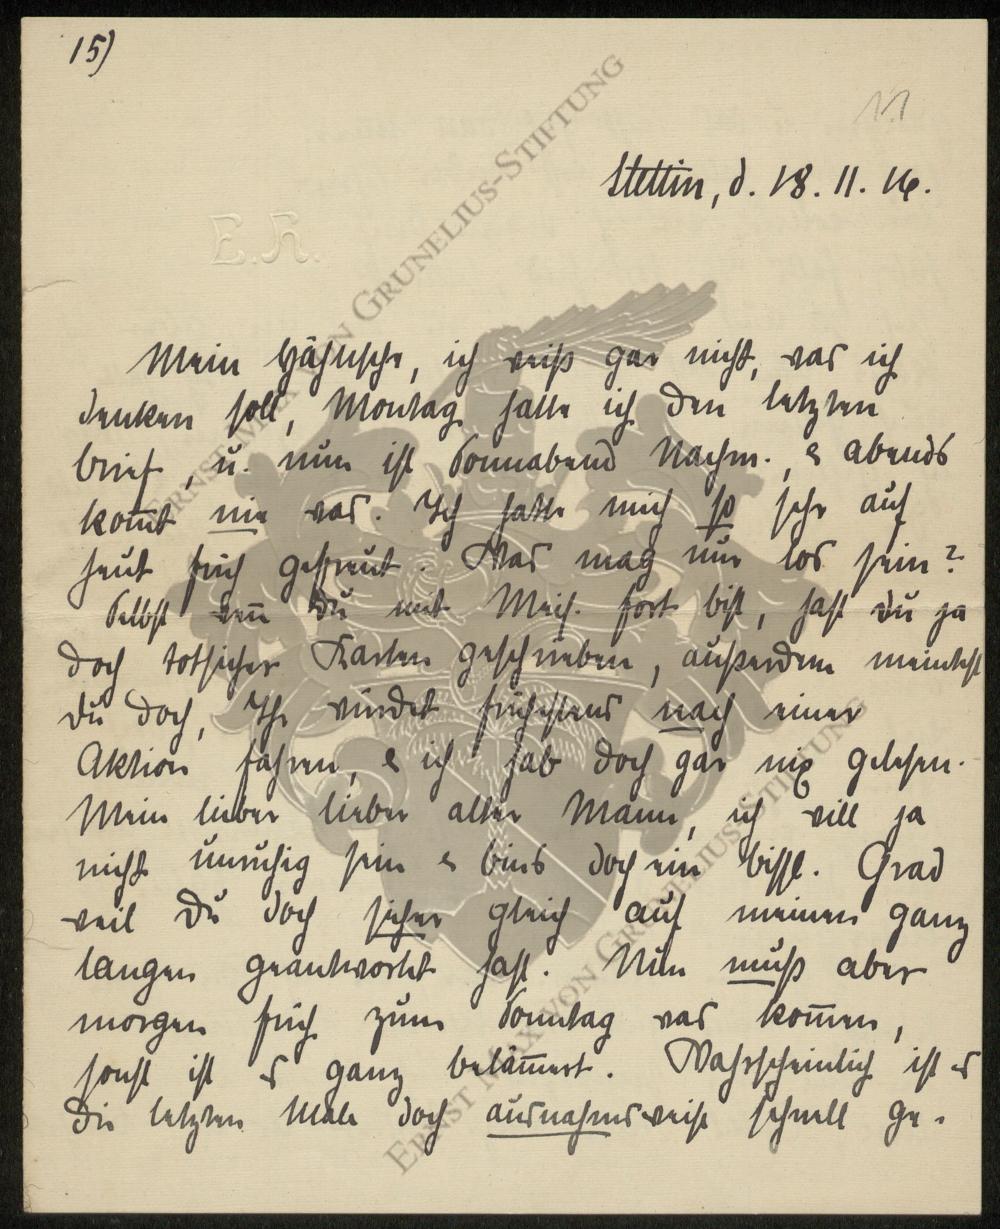 15)
11
Stettin, d. 18. 11. 16.
E.K.
Mein Hähnsche, ich weiß gar nicht, was ich
denken soll, Montag hatte ich den letzten
brief, u. nun ist Sonnabend Nachm., & abends
kom̅t nie was. Ich hatte mich so sehr auf
heut früh gefreut. Was mag nur los sein?
Selbst wen̅ Du mit Meis. fort bist, hast Du ja
doch totsicher Karten geschrieben, außerdem meintest
Du doch, Ihr würdet frühestens nach einer
Aktion fahren, & ich hab doch gar nix gelesen.
Mein lieber lieber alter Mann, ich will ja
nicht unruhig sein & bins doch ein bissl. Grad
weil Du doch sicher gleich auf meinen ganz
langen geantwortet hast. Nun muß aber
morgen früh zum Sonntag was kom̅en,
sonst ist es ganz beläm̅ert. Wahrscheinlich ist es
die letzten Male doch ausnahmsweise schnell ge-
ERNST MAX VON GRUNELIUS-STIFTUNG
ERNST MAX VON GRUNELIUS-STIFTUNG